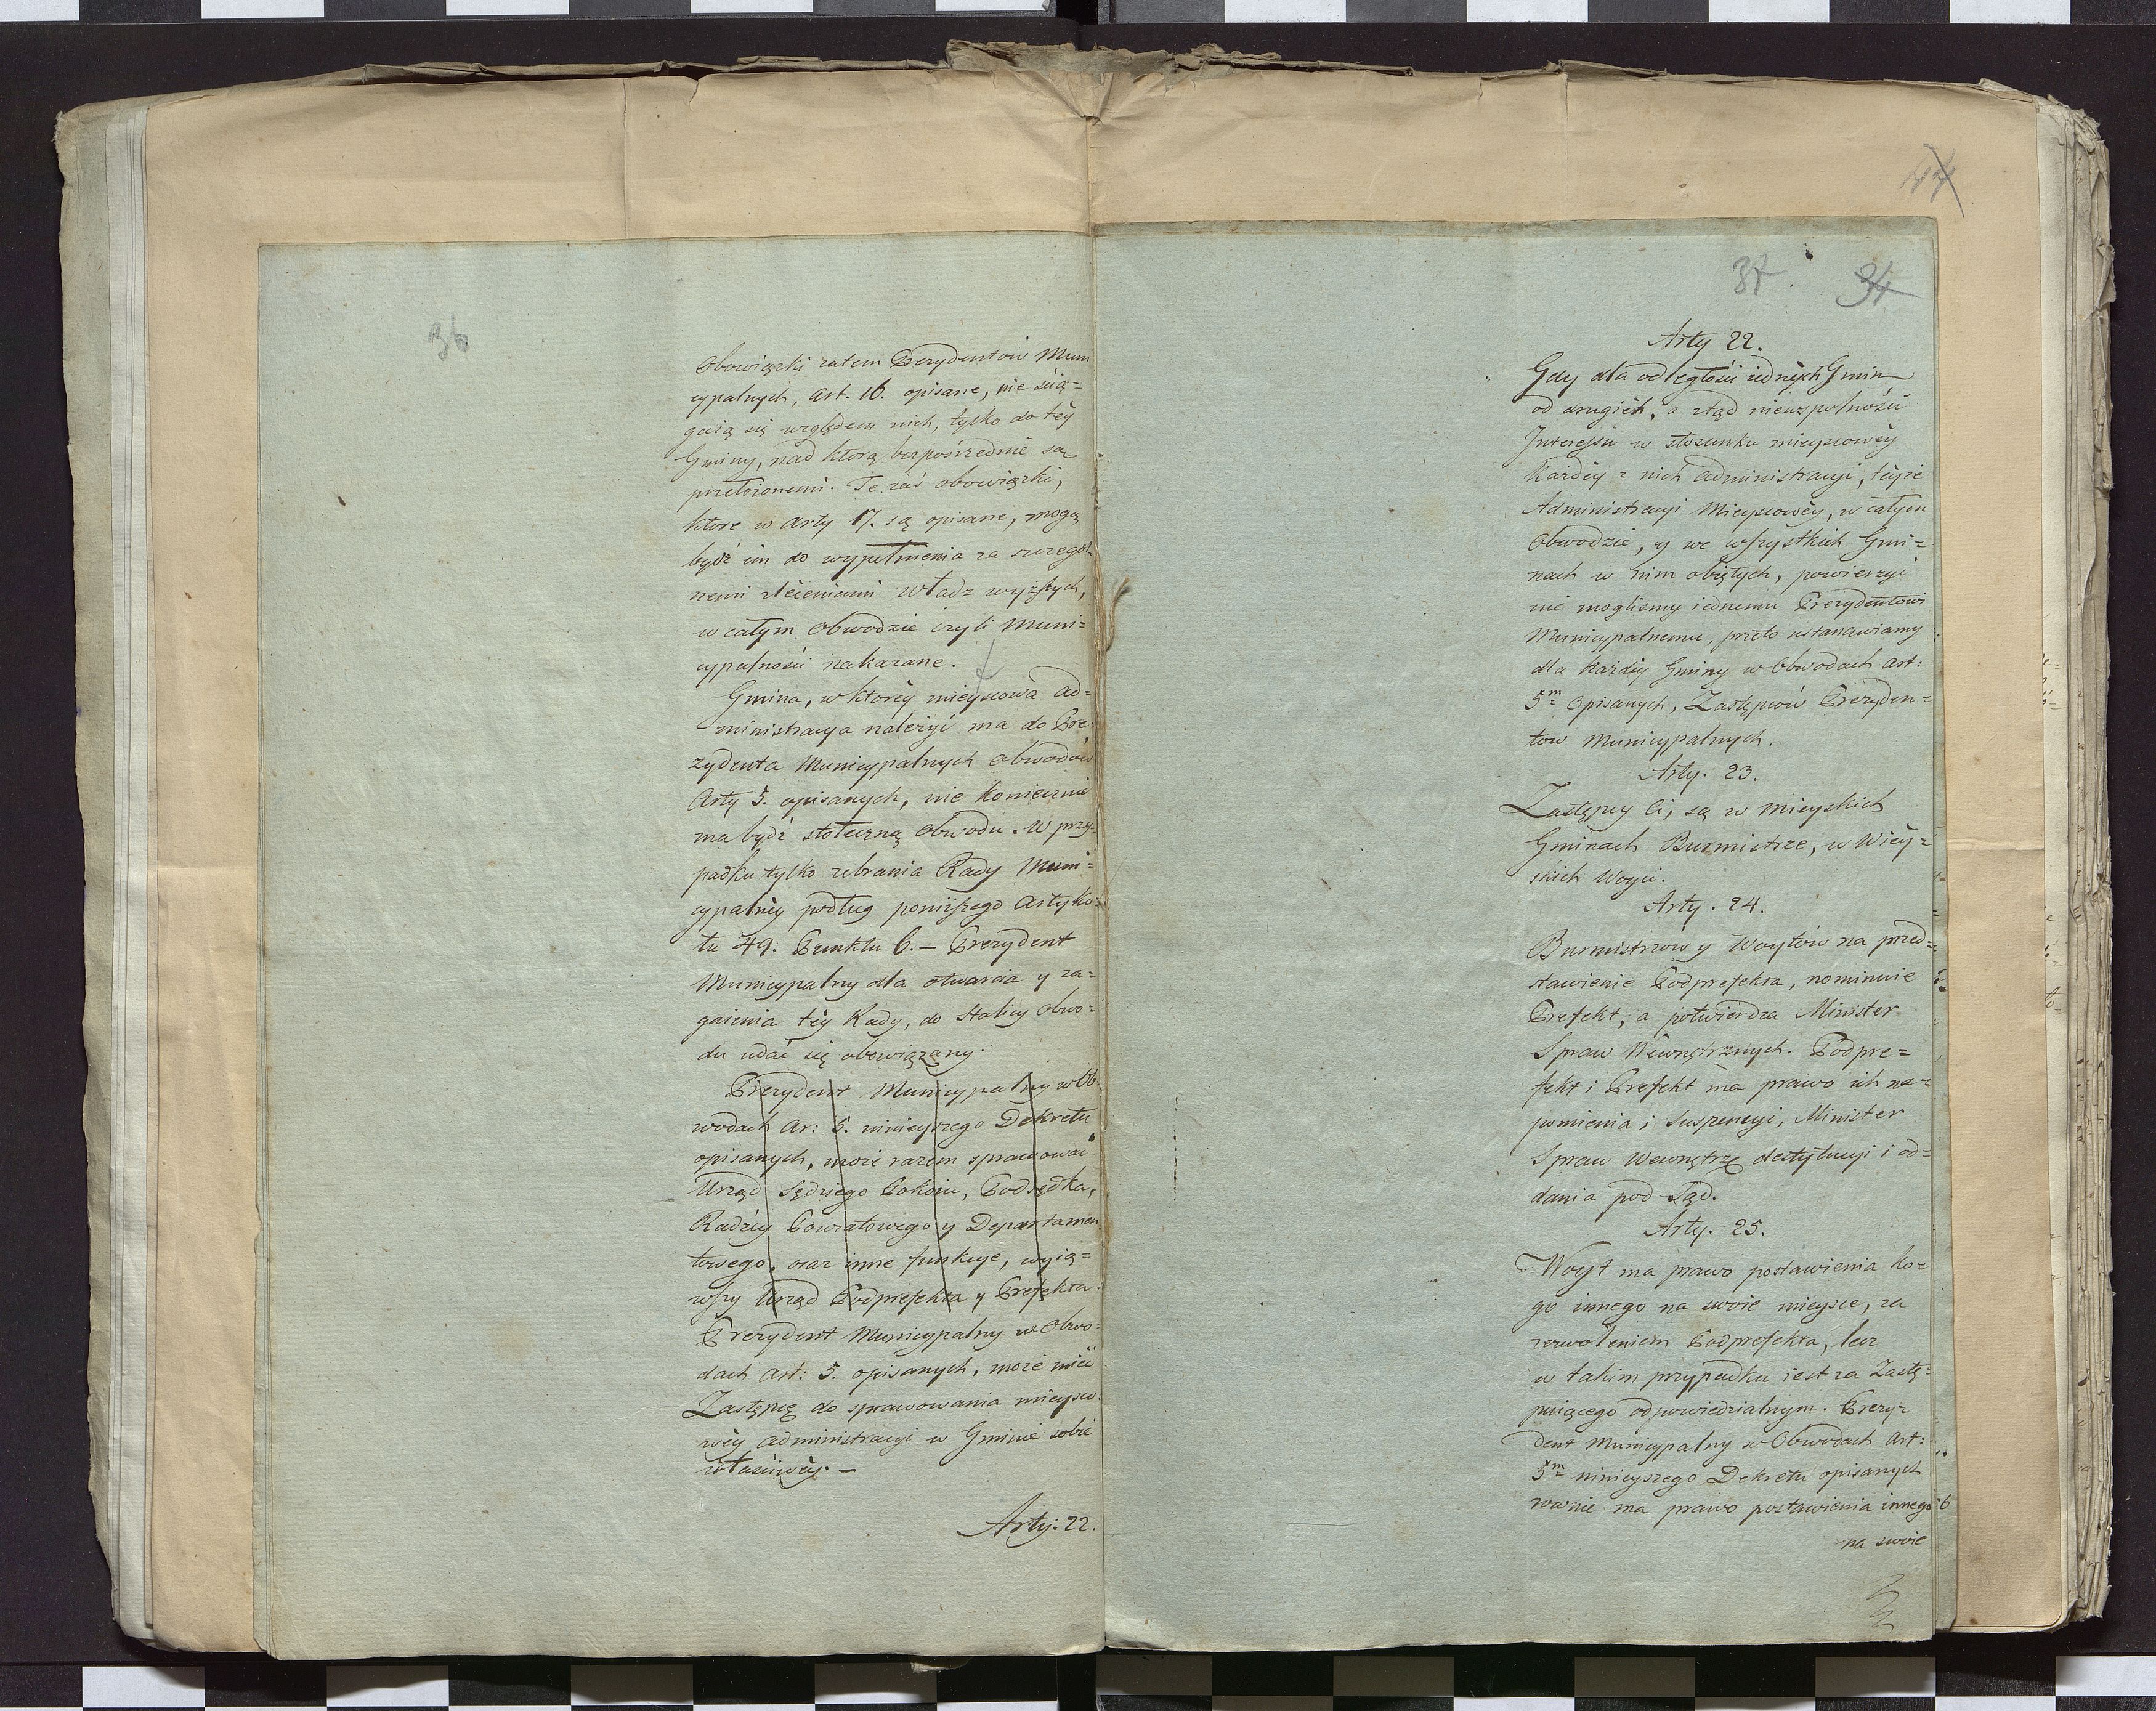 36
Obowiązki zatem Prezydentów Muni
cypalnych, art. 16. opisane, nie ścią=
gaią się względem nich, tylko do téy
Gminy, nad ktorą bezpośrednie są
przełożonemi. Te zaś obowiązki,
ktore w Arty 17. są opisane, mogą
bydź im do wypełnienia za szczegól
nemi zleceniami Władz wyższych,
w całym Obwodzie czyli Muni=
cypalności nakazane.
Gmina, w ktoréy mieyscowa ad=
ministracya należyć ma do Pre=
zydenta Municypalnych obwodów
Arty 5. opisanych, nie koniecznie
ma bydź stołeczną Obwodu. W przy=
padku tylko zebrania Rady Muni=
cypalnéy podług poniższego Artyku=
łu 49. Punktu 6. – Prezydent
Municypalny dla otwarcia y za=
gaienia téy Rady, do Stolicy Obwo=
du udać się obowiązany.
Prezydent Municypalny w Ob=
wodach Ar: 5. ninieyszego Dekretu
opisanych, może razem sprawować
Urząd Sędziego Pokoiu, Podsędka,
Radzcy Powiatowego y Departamen
towego, oraz inne funkcye, wyią=
wszy Urząd Podprefekta y Prefekta.
Prezydent Municypalny w Obwo=
dach Art: 5. opisanych, może mieć
Zastępcę do sprawowania mieysco=
wéy administracyi w Gminie sobie
właściwéy. –
Arty: 22.
44
37. 34
Arty 22.
Gdy dla odległości iednych Gmin
od drugich, a ztąd niewspolności
Interessu w stosunku mieyscowéy
każdéy z nich administracyi, téyże
Administracyi Mieyscowéy, w całym
Obwodzie, y we wszystkich Gmi=
nach w nim obiętych, powierzyć
nie moglismy iednemu Prezydentowi
Municypalnemu, przeto ustanawiamy
dla każdéy Gminy w Obwodach Art:
5m opisanych, Zastępców Prezyden=
tow Municypalnych.
Arty. 23.
Zastępcy Ci, są w mieyskich
Gminach Burmistrze, w Wiéy=
skich Woyci.
Arty. 24.
Burmistrzow y Woytów na przed=
stawienie Podprefekta, nominuie
Prefekt, a potwierdza Minister
Spraw Wewnętrznych. Podpre=
fekt i Prefekt ma prawo ich na=
pomienia i Suspencyi, Minister
Spraw Wewnętrz destytucyi i od=
dania pod Sąd.
Arty. 25.
Woyt ma prawo postawienia ko=
go innego na swoie mieysce, za
zezwoleniem Podprefekta, lecz
w takim przypadku iest za Zastę=
puiącego odpowiedzialnym. Prezy=
dent Municypalny w Obwodach Art:
5m ninieyszego Dekretu opisanych
rownie ma prawo postawienia innego
na swoie